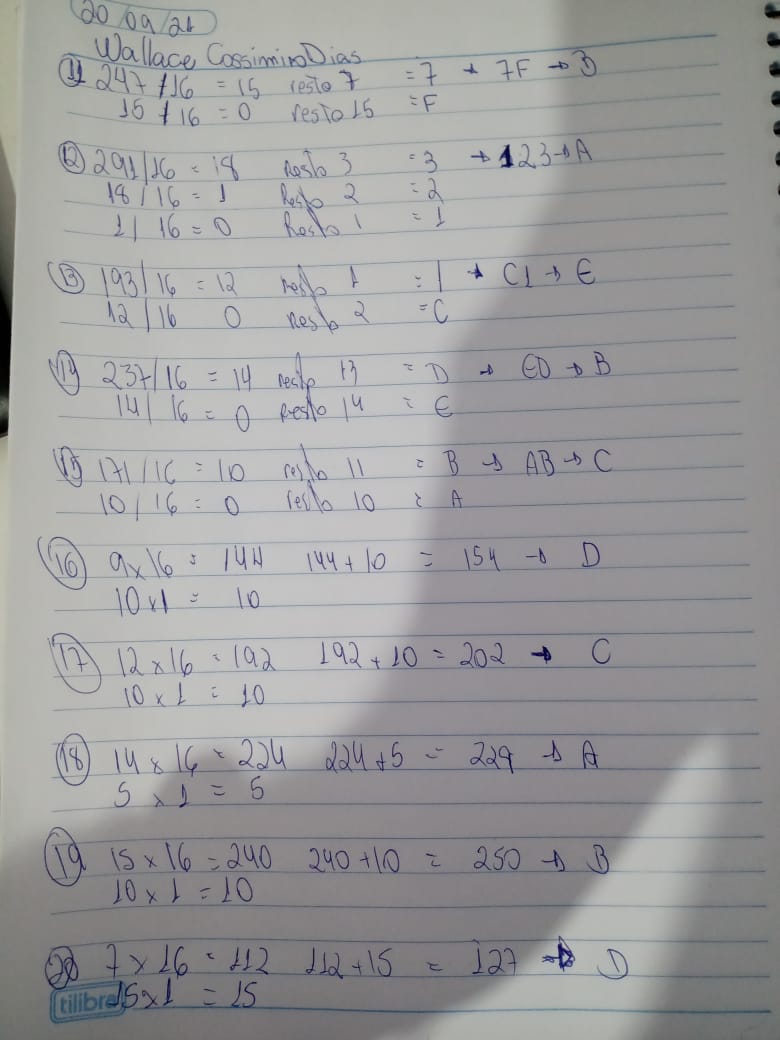 20/09/21
Wallace Cassimiro Dias
11 247/16 = 15 resto 7 = 7 → 7F → B
15/16 = 0 resto 15 = F
12 291/16 = 18 Resto 3 = 3 → 123 → A
18/16 = 1 Resto 2 = 2
1/16 = 0 Resto 1 = 1
13 193/16 = 12 resto 1 = 1 → C1 → E
12/16 0 Resto 2 = C
14 237/16 = 14 resto 13 = D → ED → B
14/16 = 0 Resto 14 = E
15 171/16 = 10 resto 11 = B → AB → C
10/16 = 0 resto 10 = A
16 9x16 = 144 144+10 = 154 → D
10x1 = 10
17 12x16 = 192 192+10 = 202 → C
10x1 = 10
18 14x16 = 224 224+5 = 229 → A
5x1 = 5
19 15x16 = 240 240+10 = 250 → B
10x1 = 10
20 7x16 = 112 112+15 = 127 → D
15x1 = 15
tilibra